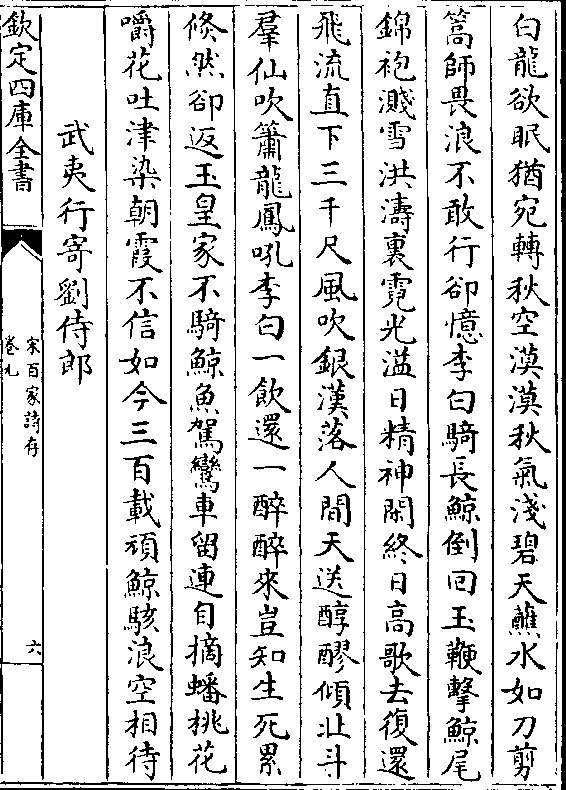 白龍欲眠猶宛轉秋空漠漠秋氣淺碧天蘸水如刀剪
篙師畏浪不敢行卻憶李白騎長鯨倒回玉鞭擊鯨尾
錦袍濺雪洪濤裏霓光溢日精神閑終日高歌去復還
飛流直下三千尺風吹銀漢落人間天送醇醪傾北斗
羣仙吹簫龍鳳吼李白一飲還一醉醉來豈知生死累
倐然卻返玉皇家不騎鯨魚駕鸞車留連自摘蟠桃花
嚼花吐津染朝霞不信如今三百載頑鯨駭浪空相待
武夷行寄劉侍郎
欽定四庫全書
宋百家詩存
卷九
六